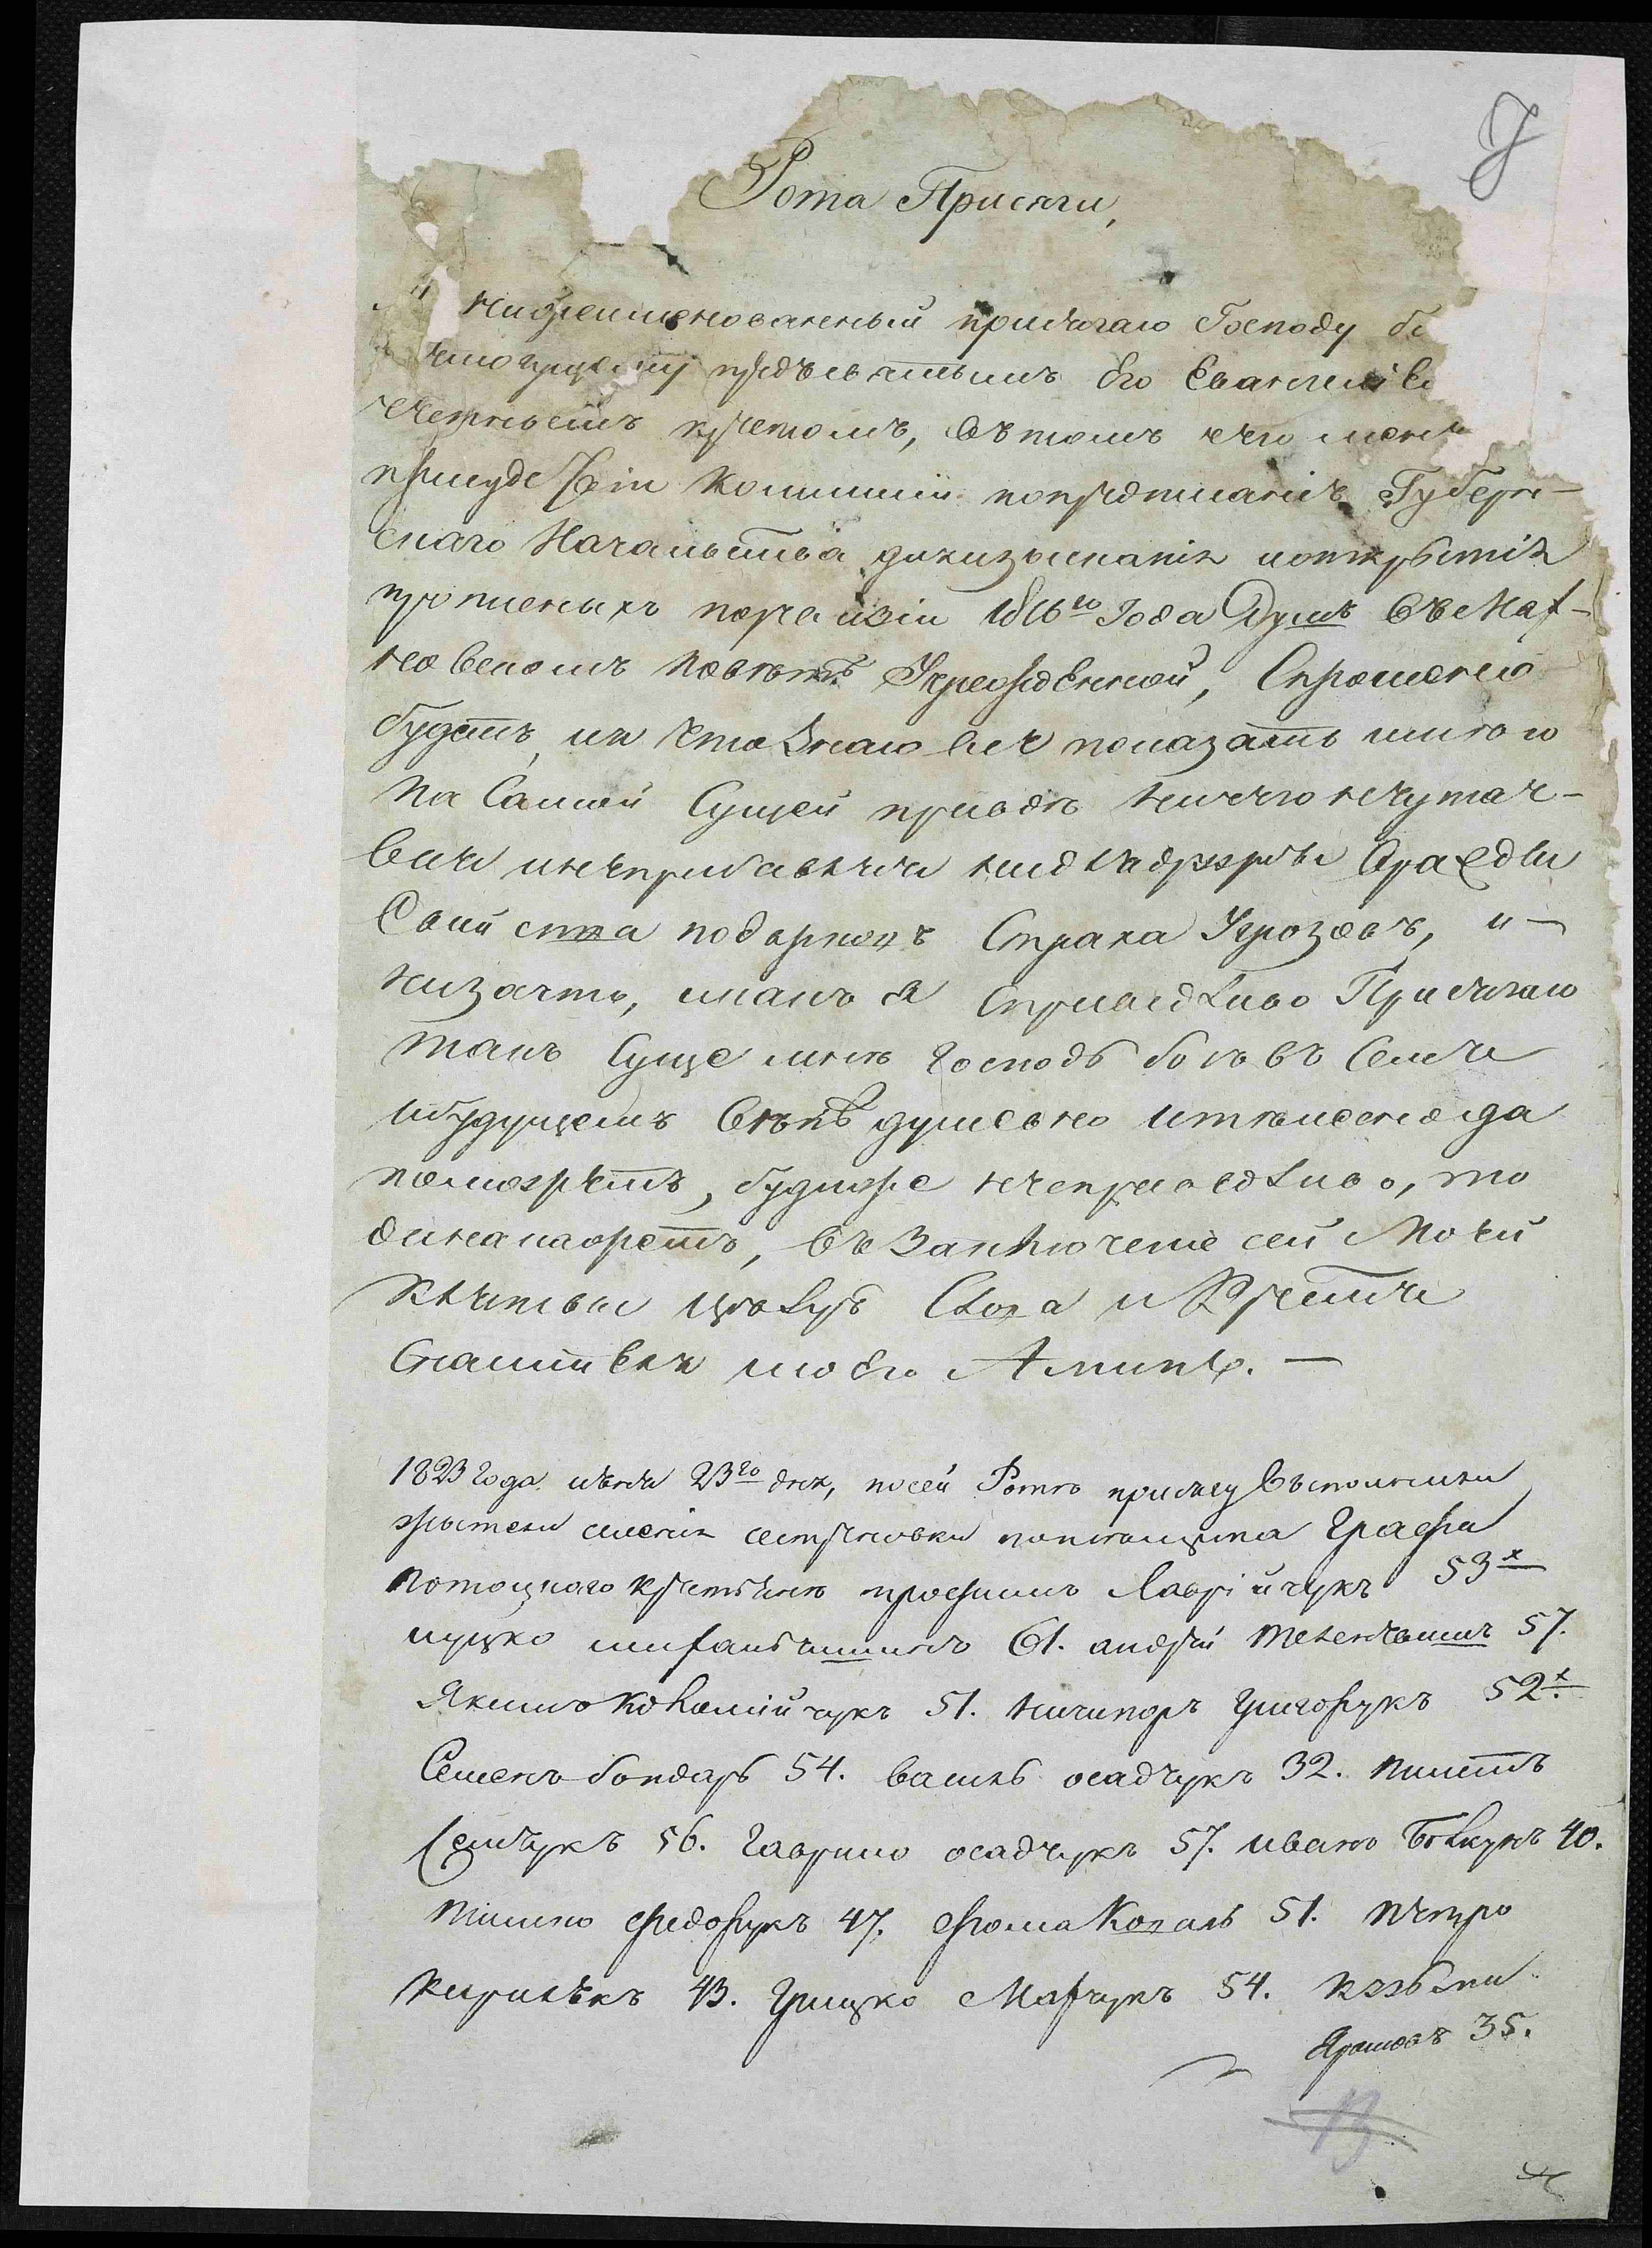 Рота Присяги,
Я нижеименованный присягаю Господу бо
могущему предъсвятымъ Его Евангеліе
Честнымъ крестомъ, въ томъ что мен
присуде Коммиссіи попредписанію Губерн-
скаго Начальства для изысканія иоткрытія
прописныхъ поревизіи 1816го Года Душъ въ Мах-
новскомъ повѣтѣ Учрежденной, Спрошено
будетъ, ия Что Знаю все показать имѣю
По Самой Сущей правдѣ ничего неутае-
вая инеприбавляя нидлядружбы вражды
Свойства подарковъ Страха Угрозовъ, и
низачто, икакъ я справедливо Присягаю
такъ Суще мнѣ Господь богъ въ Семъ
ибудущемъ Вѣкѣ душевно ителесно да
поможетъ, будеже несправедливо, то
данакажетъ, въ Заключеніе сей Моей
Клятвы цѣлую Слова и Крестъ
Спасителя моего Аминь. —
1823 Года 23го дня, посей Ротѣ присягу выполнили
жители имѣнія сестреновки помѣщика Графа
Потоцкого крестьянѣ трофимъ Лаврійчукъ 53х
ицко 61. андрей 57.
Якимъ Коломійчукъ 51. Ничипоръ Григорукъ 52х.
Семенъ бондарь 54. василь осадчукъ 32. пилипъ
Семчукъ 56. Гаврило осадчукъ 57. иванъ 40.
тимко федорукъ 47. фома Коваль 51. петро
Кирилюкъ 43. Грицко Марчукъ 54.
35.